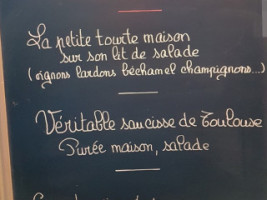 La petite tourte maison
sur son lit de salade
(oignons lardons béchamel champignons...)
Véritable saucisse de Toulouse
Purée maison, salade